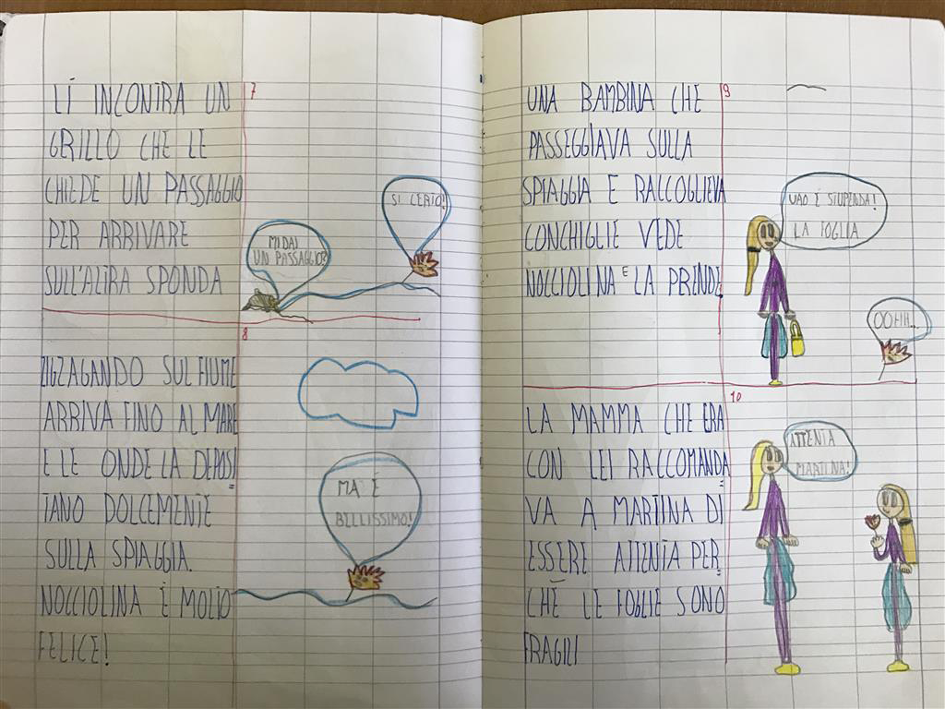 LÌ INCONTRA UN
GRILLO CHE LE
CHIEDE UN PASSAGGIO
PER ARRIVARE
SULL'ALTRA SPONDA
7
MI DAI
UN PASSAGGIO?
SI CERTO!
8
ZIGZAGANDO SUL FIUME
ARRIVA FINO AL MARE
E LE ONDE LA DEPOSI
TANO DOLCEMENTE
SULLA SPIAGGIA.
NOCCIOLINA È MOLTO
FELICE!
MA È
BELLISSIMO!
UNA BAMBINA CHE
PASSEGGIAVA SULLA
SPIAGGIA E RACCOGLIEVA
CONCHIGLIE VEDE
NOCCIOLINA E LA PRENDE.
9
UAO È STUPENDA!
LA FOGLIA
OOHH...
10
LA MAMMA CHE ERA
CON LEI RACCOMANDA
VA A MARTINA DI
ESSERE ATTENTA PER
CHÈ LE FOGLIE SONO
FRAGILI
ATTENTA
MARTINA!